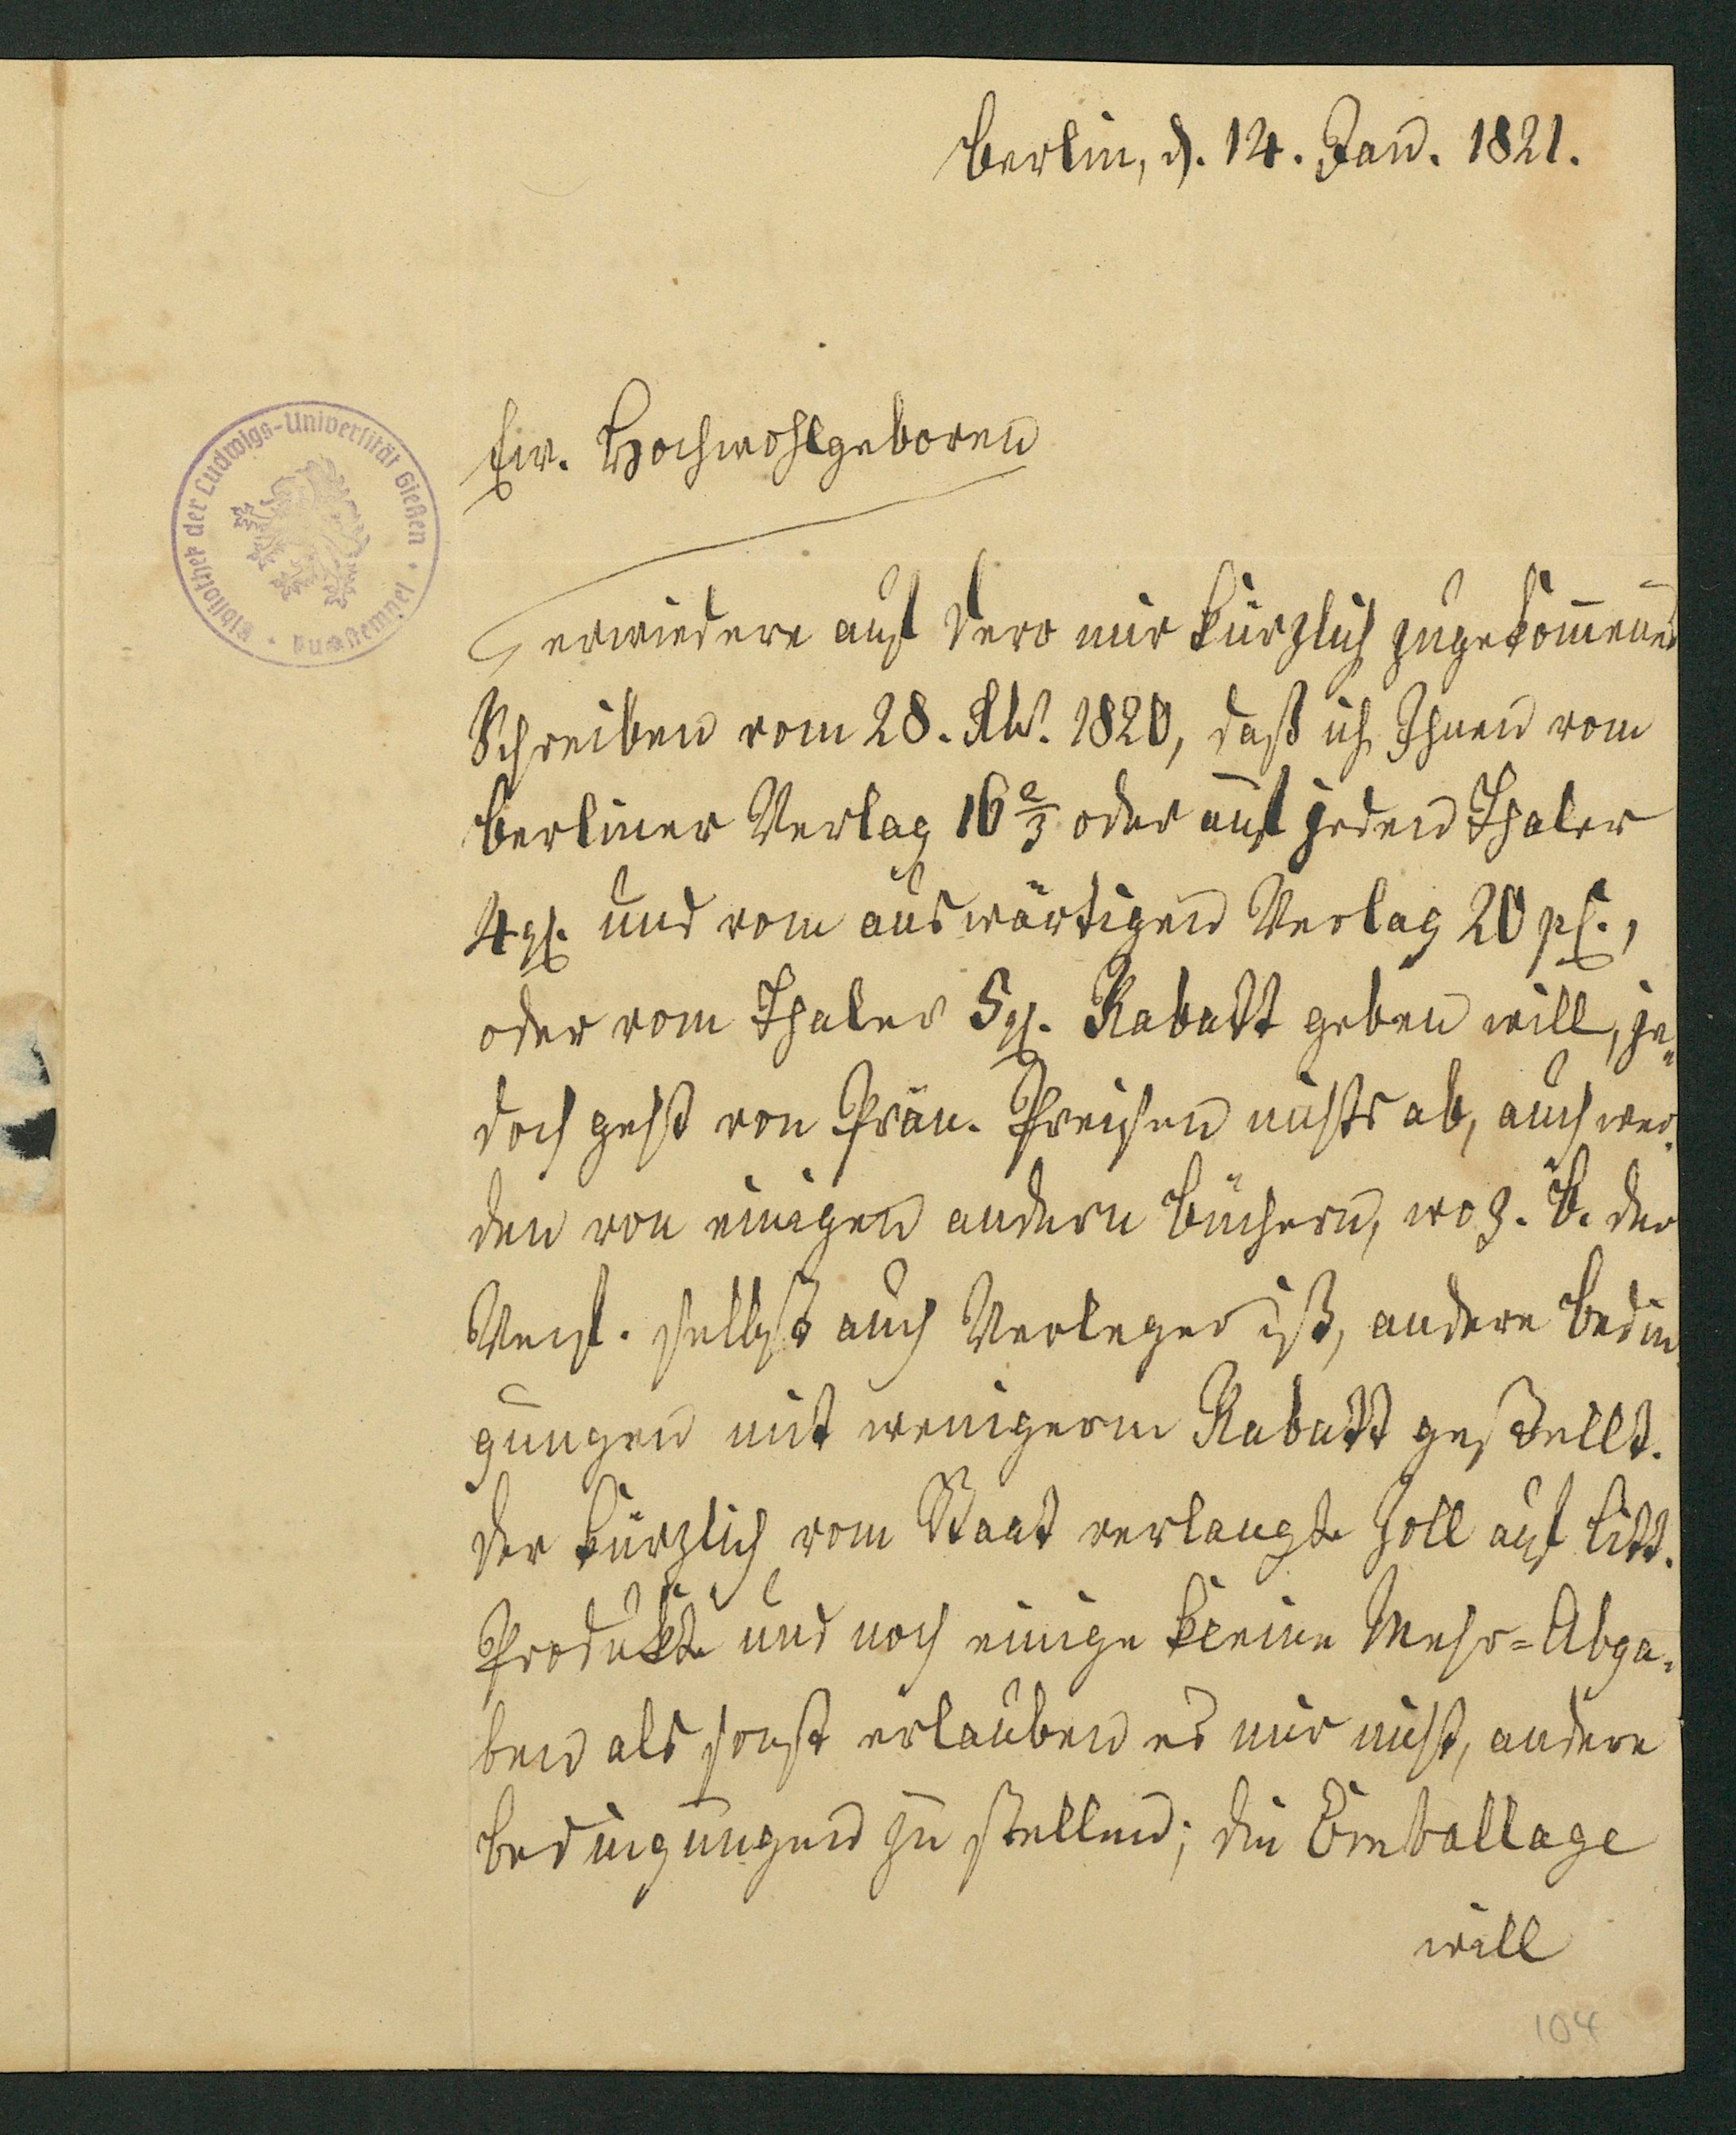 Berlin, d. 14. Jan. 1821.
Bibliothek der Ludwigs-Universität Gießen
Ew. Hochwohlgeboren
erwiedere auf Dero mir kürzlich zugekom̄enes
Schreiben vom 28. 1820, daß ich Ihnen vom
Berliner Verlag 16 2/3 oder auf jeden Thaler
4 gr. und vom auswärtigen Verlag 20 pC.,
oder vom Thaler 5 gr. Rabatt geben will, je„
doch geht von Prän. Preisen nichts ab, auch wer„
den von einigen andern Büchern, wo z. B. der
Verf. selbst auch Verleger ist, andere Bedin„
gungen mit wenigerm Rabatt gestellt.
Der kürzlich vom Staat verlangte Zoll auf Litt.
Produkte und noch einige kleine Mehr=Abga„
ben als sonst erlauben es mir nicht, andere
Bedingungen zu stellen; die Emballage
will
104